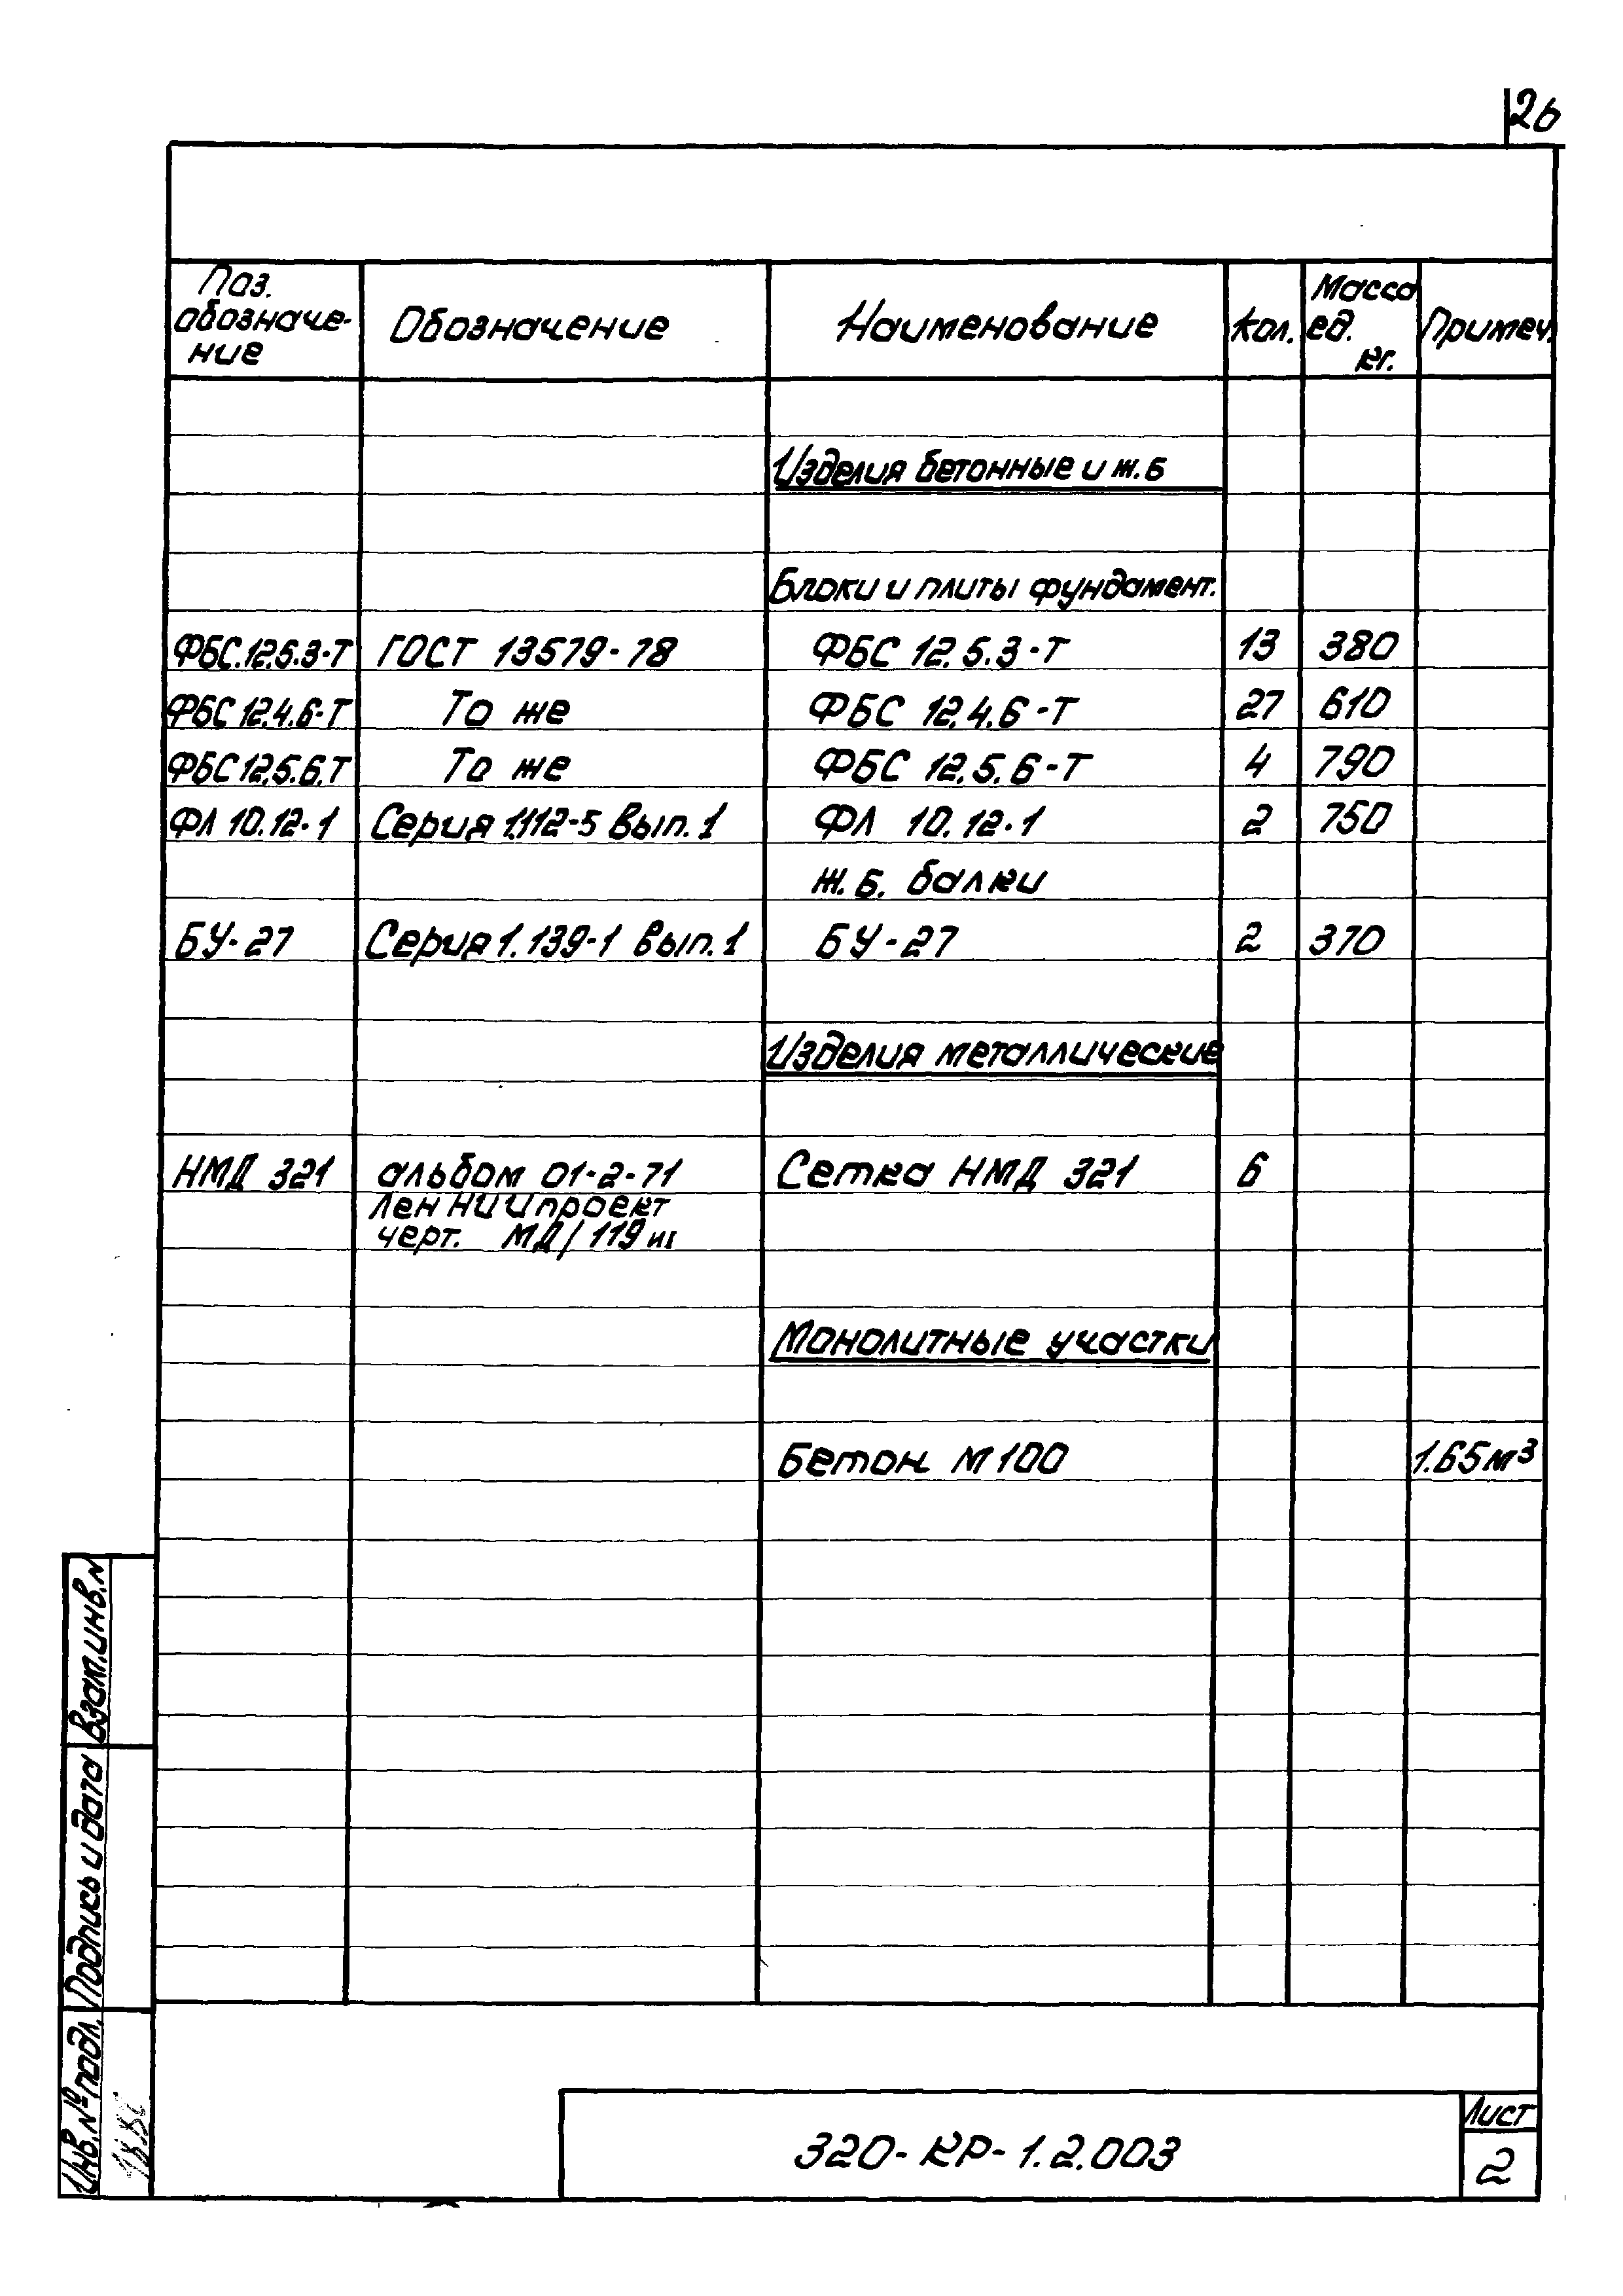 26
Поз. обозначе-ние Обозначение Наименование Кол. Масса ед. кг. Примеч.
Изделия бетонные и ж.б
Блоки и плиты фундамент.
ФБС.12.5.3-Т ГОСТ 13579-78 ФБС 12.5.3-Т 13 380
ФБС 12.4.6-Т То же ФБС 12.4.6-Т 27 610
ФБС 12.5.6.Т То же ФБС 12.5.6-Т 4 790
ФЛ 10.12-1 Серия 1.112-5 Вып. 1 ФЛ 10.12-1 2 750
ж.б. балки
БУ-27 Серия 1.139-1 Вып. 1 БУ-27 2 370
Изделия металлические
НМД 321 альбом 01-2-71 Сетка НМД 321 6
ЛенНИИпроект
черт. МД/119
Монолитные участки
Бетон М100 1.65м³
Взам.инв.N
Подпись и дата
Инв.№подл.
320-КР-1.2.003
Лист
2